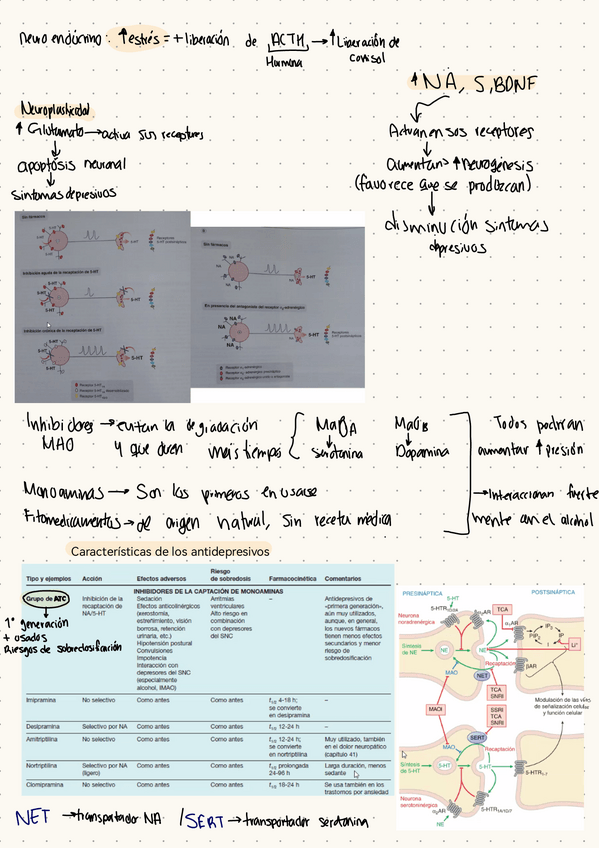 neuro endócrino: ↑estrés = + liberación de ACTH → ↑Liberación de
Hormona cortisol
↑NA, S, BDNF
Neuroplasticidad
↑ Glutamato → activa sus receptores
↓
apoptosis neuronal
↓
sintomas depresivos
Actuan en sos receptores
↓
Aumentan ↑neurogénesis
(favorece que se produzcan)
↓
disminución sintomas
depresivos
Sin fármacos
Inhibición aguda de la recaptación de 5-HT
Inhibición crónica de la recaptación de 5-HT
5-HT
Sin fármacos
En presencia del antagonista del receptor α₂-adrenérgico
NA
5-HT
Inhibidores → evitan la degradación
MAO y que duren más tiempo
MaOA
↓
Serotonina
MaOB
↓
Dopamina
Todos podrían
aumentar ↑ presión
→ Interaccionan fuerte
mente con el alcohol
Monoaminas → Son los primeros en usarse
Fitomedicamentos → de origen natural, sin receta médica
Características de los antidepresivos
Tipo y ejemplos Acción Efectos adversos Riesgo de sobredosis Farmacocinética Comentarios
INHIBIDORES DE LA CAPTACIÓN DE MONOAMINAS
Grupo de ATC
Inhibición de la
recaptación de
NA/5-HT
Sedación
Efectos anticolinérgicos
(xerostomía,
estreñimiento, visión
borrosa, retención
urinaria, etc.)
Hipotensión postural
Convulsiones
Impotencia
Interacción con
depresores del SNC
(especialmente
alcohol, IMAO)
Arritmias
ventriculares
Alto riesgo en
combinación
con depresores
del SNC
–
Antidepresivos de
«primera generación»,
aún muy utilizados,
aunque, en general,
los nuevos fármacos
tienen menos efectos
secundarios y menor
riesgo de
sobredosificación
1° generación
+ usados
Riesgos de sobredosificación
Imipramina No selectivo Como antes Como antes t1/2 4-18 h; –
se convierte
en desipramina
Desipramina Selectivo por NA Como antes Como antes t1/2 12-24 h –
Amitriptilina No selectivo Como antes Como antes t1/2 12-24 h; Muy utilizado, también
se convierte en el dolor neuropático
en nortriptilina (capítulo 41)
Nortriptilina Selectivo por NA Como antes Como antes t1/2 prolongada Larga duración, menos
(ligero) 24-96 h sedante
Clomipramina No selectivo Como antes Como antes t1/2 18-24 h Se usa también en los
trastornos por ansiedad
PRESINÁPTICA
POSTSINÁPTICA
Neurona
noradrenérgica
5-HT
TCA
α₁AR
IP₃
PIP₂
IP
I
Li⁺
Síntesis
de NE
NE
NE
Recaptación
βAR
MAO
NET
TCA
SNRI
MAOI
SSRI
TCA
SNRI
Modulación de las vías
de señalización celular
y función celular
SERT
MAO
Recaptación
Síntesis
de 5-HT
5-HT
5-HT
5-HTR1-7
Neurona
serotoninérgica
α₂AR
NE
5-HTR1A/1D/7
NET → transportador NA / SERT → transportador serotonina